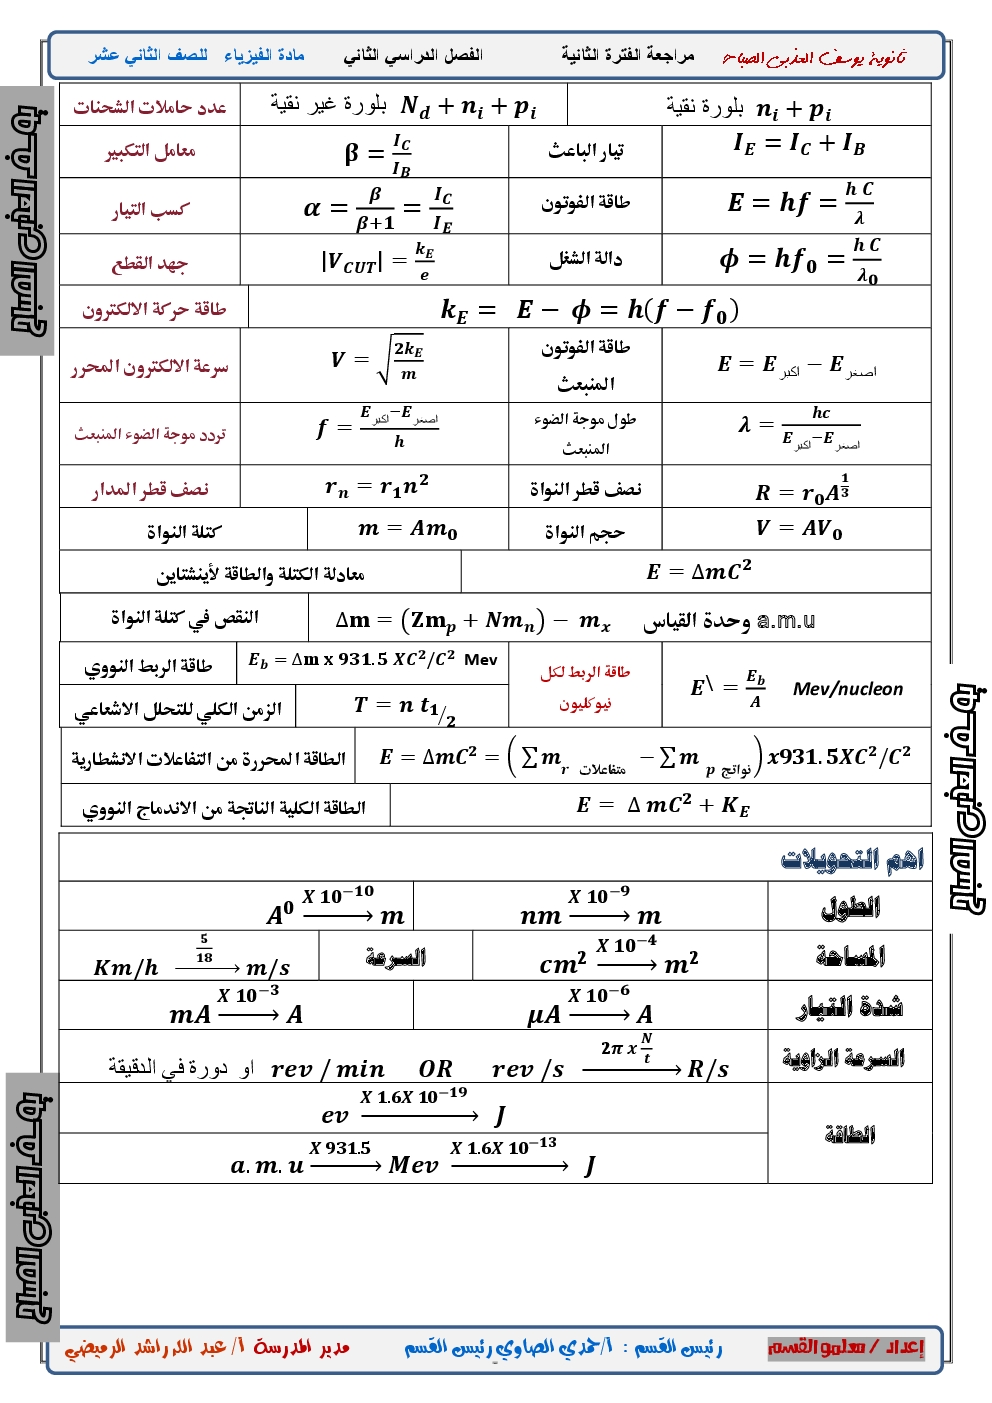 ثانوية يوسف العذبي الصباح مراجعة الفترة الثانية الفصل الدراسي الثاني مادة الفيزياء للصف الثاني عشر
عدد حاملات الشحنات N_d + n_i + p_i بلورة غير نقية n_i + p_i بلورة نقية
معامل التكبير β = I_C/I_B تيار الباعث I_E = I_C + I_B
كسب التيار α = β/(β+1) = I_C/I_E طاقة الفوتون E = hf = h C/λ
جهد القطع |V_CUT| = k_E/e دالة الشغل ϕ = hf_0 = h C/λ_0
طاقة حركة الالكترون k_E = E − ϕ = h(f − f_0)
سرعة الالكترون المحرر V = √(2k_E/m) طاقة الفوتون المنبعث E = E_اكبر − E_اصغر
تردد موجة الضوء المنبعث f = (E_اكبر − E_اصغر)/h طول موجة الضوء المنبعث λ = hc/(E_اكبر − E_اصغر)
نصف قطر المدار r_n = r_1n² نصف قطر النواة R = r_0A^(1/3)
كتلة النواة m = Am_0 حجم النواة V = AV_0
معادلة الكتلة والطاقة لأينشتاين E = ΔmC²
النقص في كتلة النواة Δm = (Zm_p + Nm_n) − m_x وحدة القياس a.m.u
طاقة الربط النووي E_b = Δm x 931.5 XC²/C² Mev طاقة الربط لكل نيوكليون E\ = E_b/A Mev/nucleon
الزمن الكلي للتحلل الاشعاعي T = n t_1/2
الطاقة المحررة من التفاعلات الانشطارية E = ΔmC² = (∑m_r متفاعلات − ∑m_p نواتج)x931.5XC²/C²
الطاقة الكلية الناتجة من الاندماج النووي E = Δ mC² + K_E
اهم التحويلات
الطول nm X 10⁻⁹ → m A⁰ X 10⁻¹⁰ → m
المساحة cm² X 10⁻⁴ → m² السرعة Km/h 5/18 → m/s
شدة التيار μA X 10⁻⁶ → A mA X 10⁻³ → A
السرعة الزاوية او دورة في الدقيقة rev/min OR rev/s 2π x N/t → R/s
الطاقة ev X 1.6X 10⁻¹⁹ → J
a.m.u X 931.5 → Mev X 1.6X 10⁻¹³ → J
إعداد / معلمو القسم رئيس القسم : أ/حمدي الصاوي رئيس القسم مدير المدرسة أ/ عبد الله راشد الرميضي